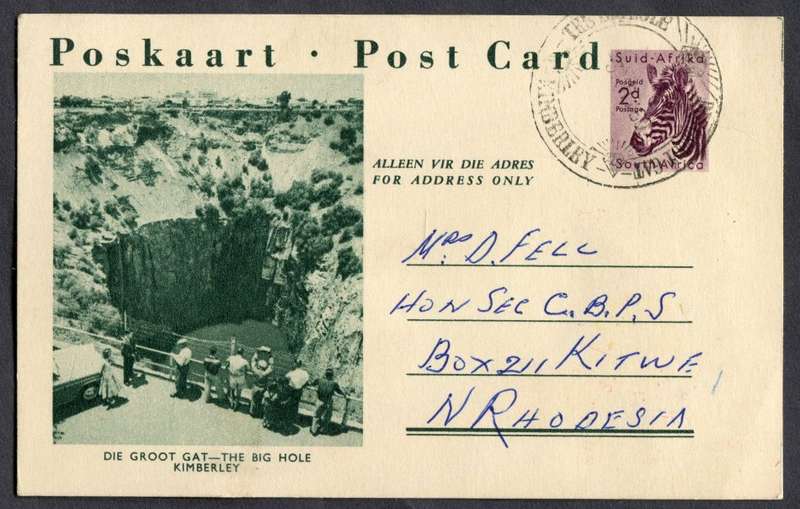 Poskaart · Post Card
Suid-Afrika
Posgeld
2d
Postage
South Africa
THE BIG HOLE
KIMBERLEY
GAT
ALLEEN VIR DIE ADRES
FOR ADDRESS ONLY
Mrs D. FELL
HON SEC C.B.P.S
BOX 211 KITWE
N RHODESIA
DIE GROOT GAT—THE BIG HOLE
KIMBERLEY